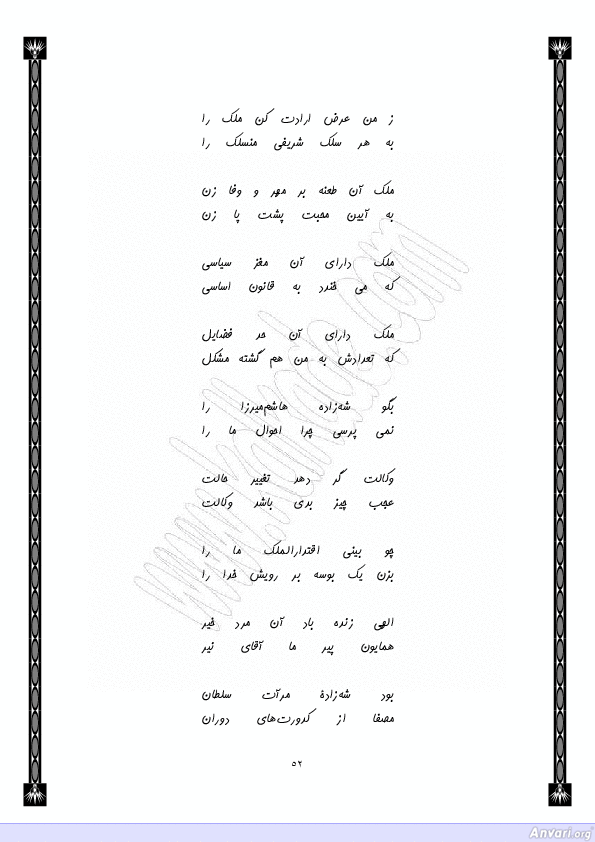 ز من عرض ارادت کن ملک را
به هر سلک شریفی منسلک را
ملک آن طعنه بر مهر و وفا زن
به آیین محبت پشت پا زن
ملک دارای آن مغز سیاسی
که می خندد به قانون اساسی
ملک دارای آن حد فضایل
که تعدادش به من هم گشته مشکل
بگو شه‌زاده هاشم‌میرزا را
نمی پرسی چرا احوال ما را
وکالت گر دهد تغییر حالت
عجب چیز بدی باشد وکالت
چو بینی اقتدارالملک ما را
بزن یک بوسه بر رویش خدا را
الهی زنده باد آن مرد خیر
همایون پیر ما آقای نیر
بود شه‌زادهٔ مرآت سلطان
مصفا از کدورت‌های دوران
۵۲
Anvari.org